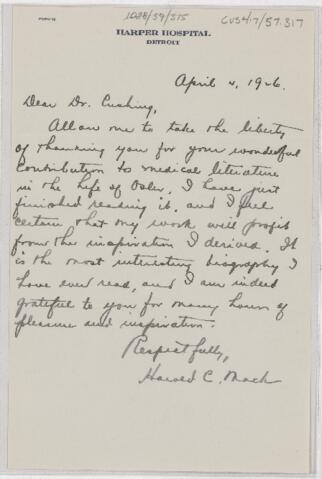 1028/59/515
CUS417/57.317
HARPER HOSPITAL
DETROIT
April 4, 1926.
Dear Dr. Cushing,
Allow me to take the liberty
of thanking you for your wonderful
contribution to medical literature
in the Life of Osler. I have just
finished reading it, and I feel
certain that my work will profit
from the inspiration I derived. It
is the most interesting biography I
have ever read, and I am indeed
grateful to you for many hours of
pleasure and inspiration.
Respectfully,
Harold C. Mack